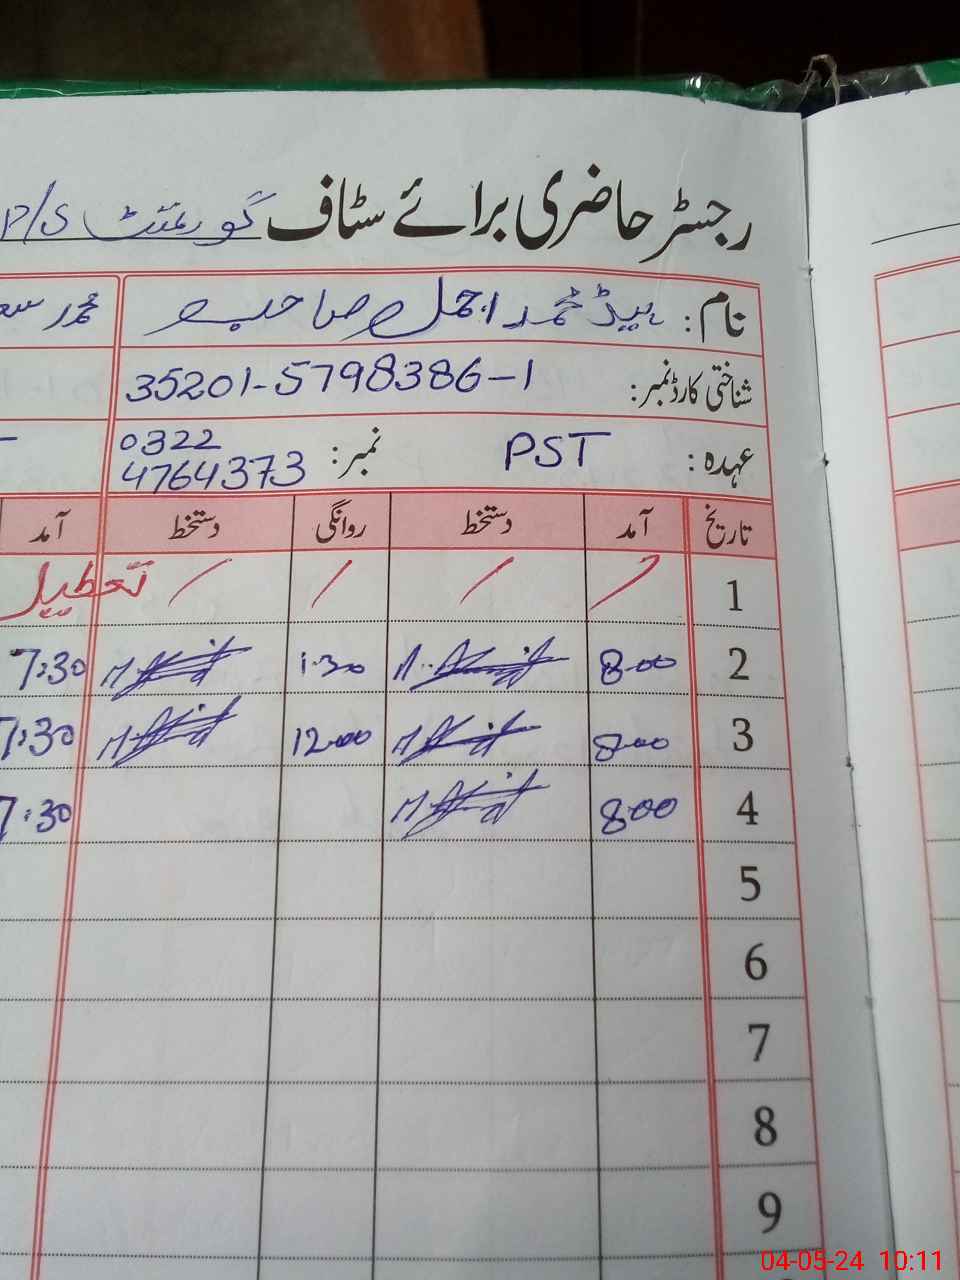 رجسٹر حاضری برائے سٹاف گورنمنٹ P/S
نام: ہیڈ محمد اجمل صاحب
محمد سع
شناختی کارڈ نمبر: 35201-5798386-1
عہدہ: PST نمبر: 0322
4764373
تاریخ آمد دستخط روانگی دستخط آمد
1 تعطیل
2 8:00 1:30 7:30
3 8:00 12:00 7:30
4 8:00 7:30
5
6
7
8
9
04-05-24 10:11